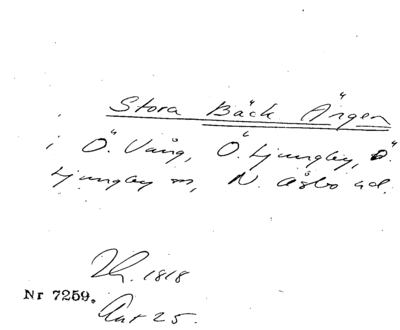 Stora Bäck Ängen
i Ö. Vång, Ö. Ljungby, Ö.
Ljungby sn, N. Åsbo hd.
1818
Nr 7259.
Art 25.